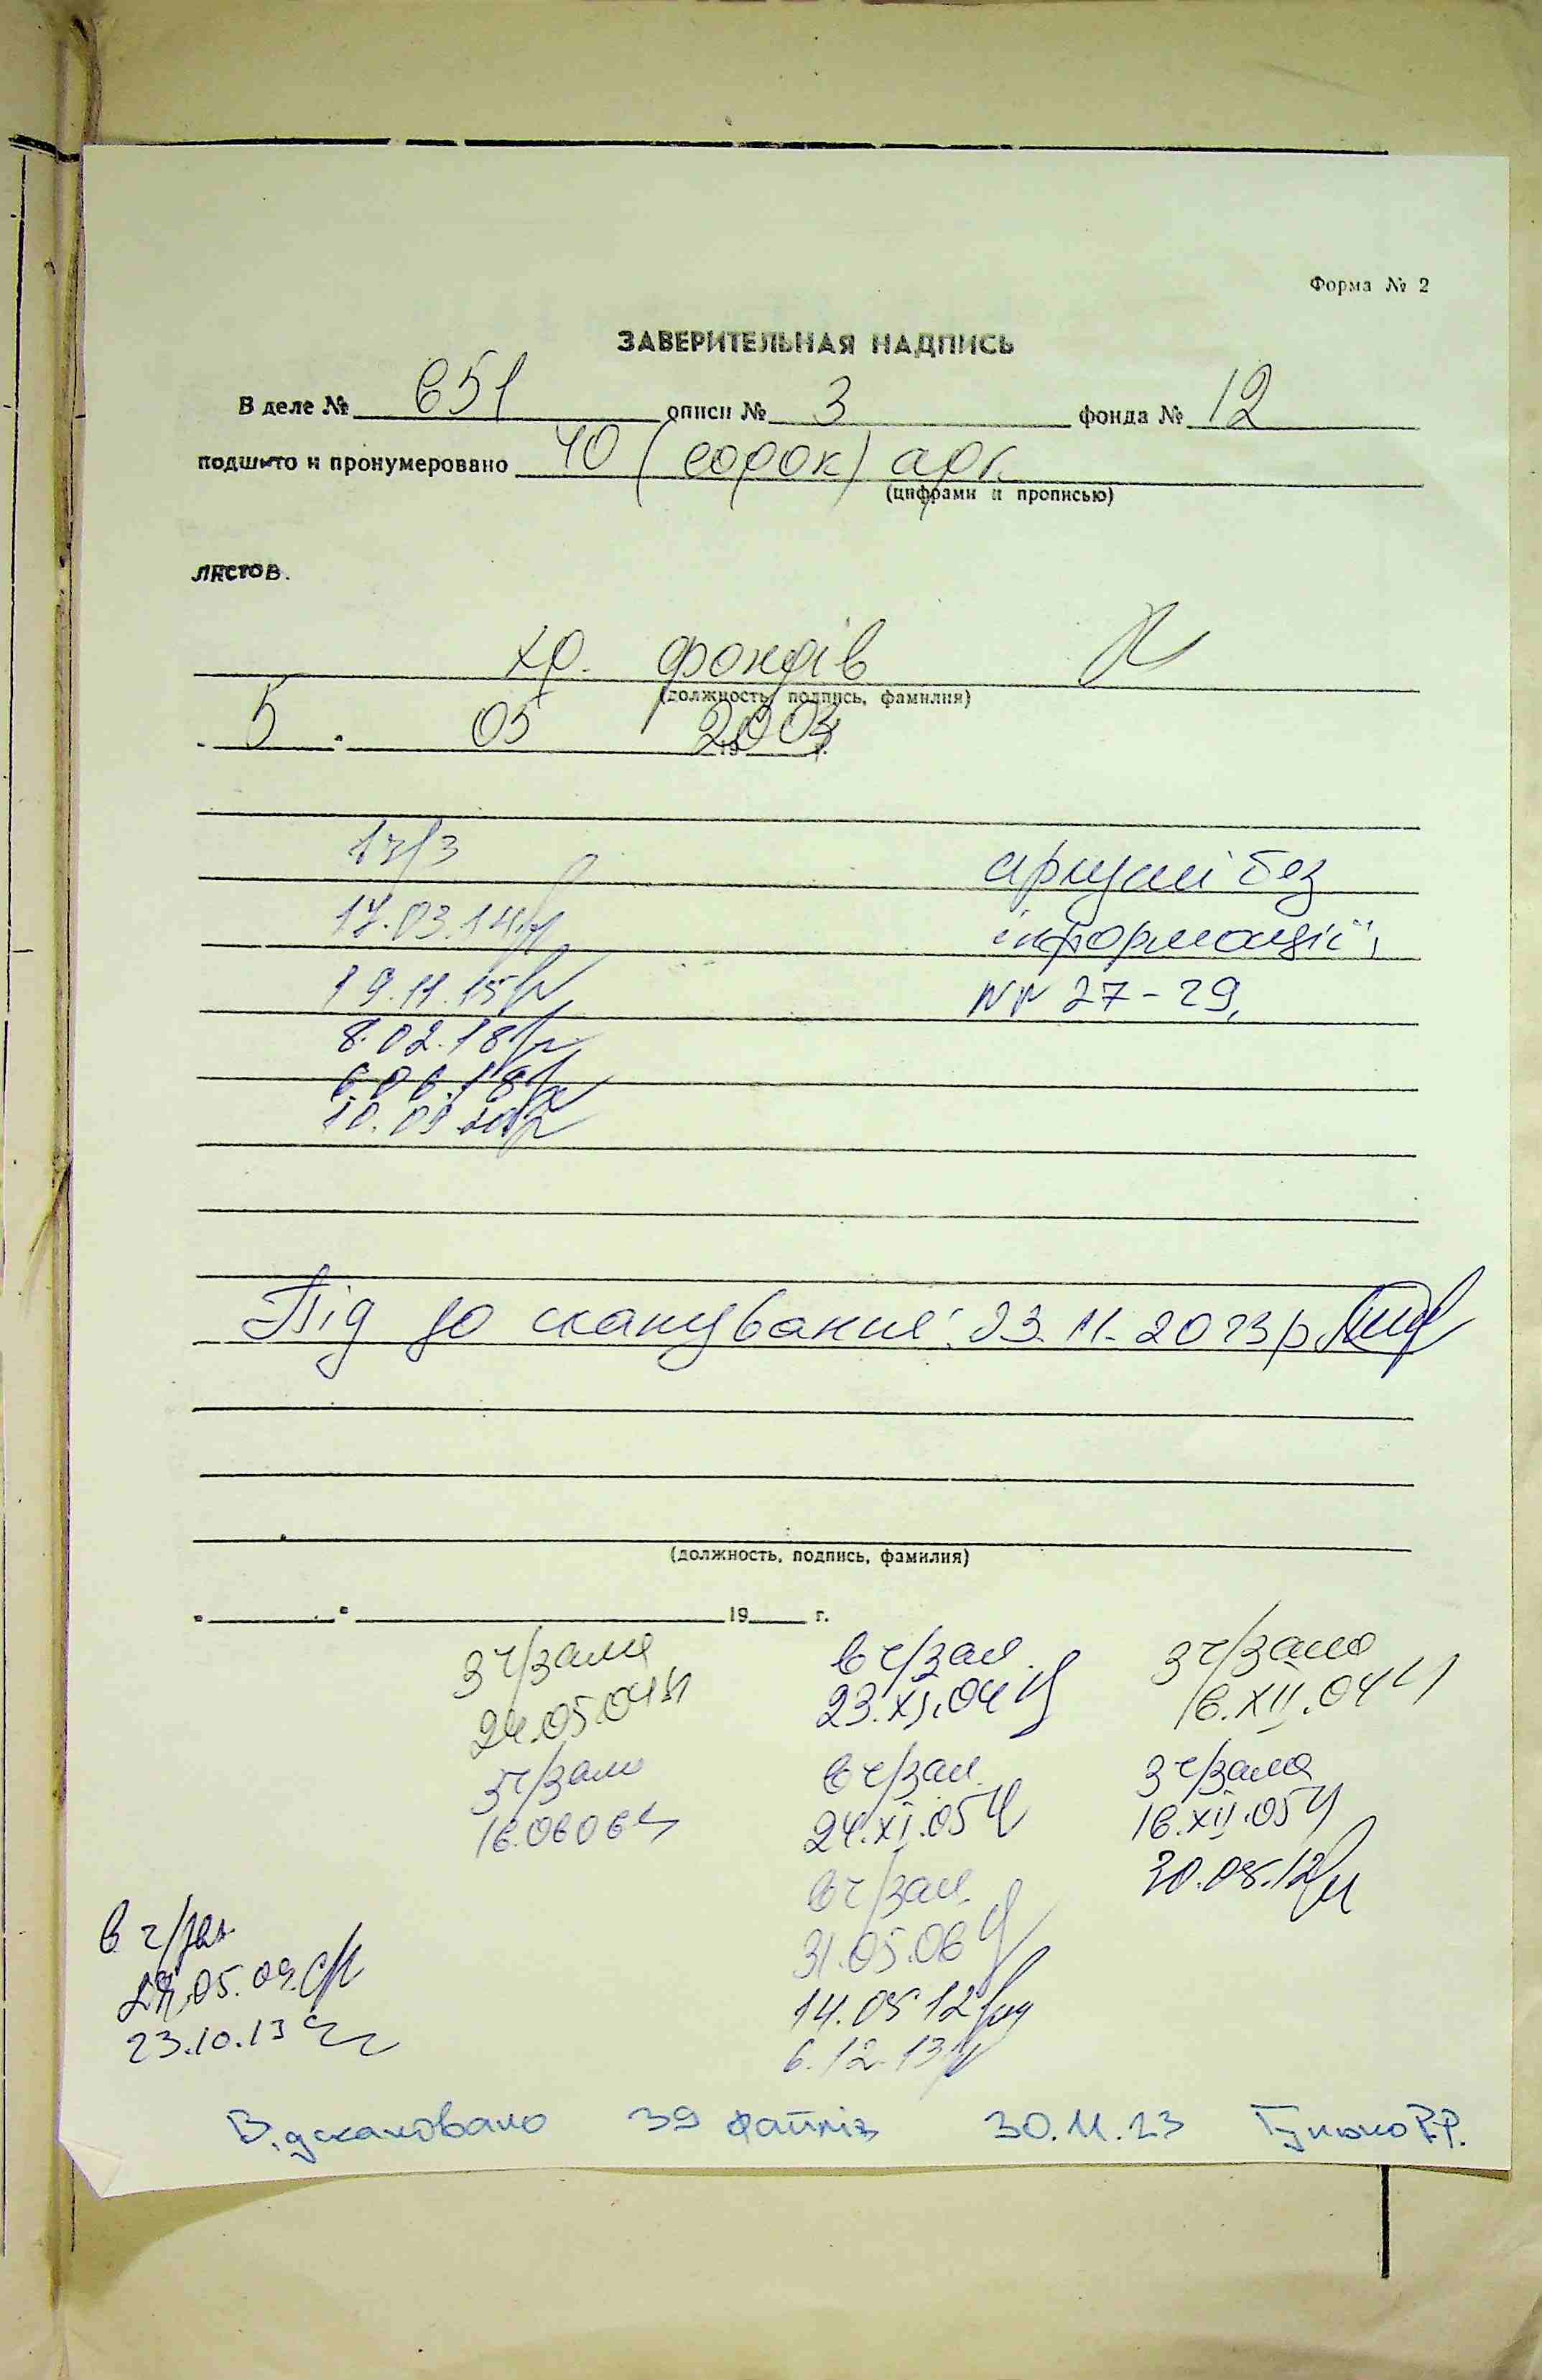 Форма № 2
ЗАВЕРИТЕЛЬНАЯ НАДПИСЬ
В деле № 651 описи № 3 фонда № 12
подшито и пронумеровано 40 (сорок) арк.
(цифрами и прописью)
листов.
хр. фондів
(должность, подпись, фамилия)
5 05 2003
19 г.
аркуші без
17.03.14
інформації,
19.11.15
NN 27-29,
8.02.18
6.06.18
Під до сканування: 23.11.2023р
(должность, подпись, фамилия)
19 г.
з ч/зали в ч/зал з ч/зали
24.05.04 23.XI.04 16.XII.04
з ч/зали в ч/зал. з ч/зала
16.06 06 24.XI.05 16.XII.05
в ч/зал. 20.08.12
в ч/зал. 31.05.06
05.09. 14.05 12
23.10.13 6.12.13
Відскановано 39 файлів 30.11.23